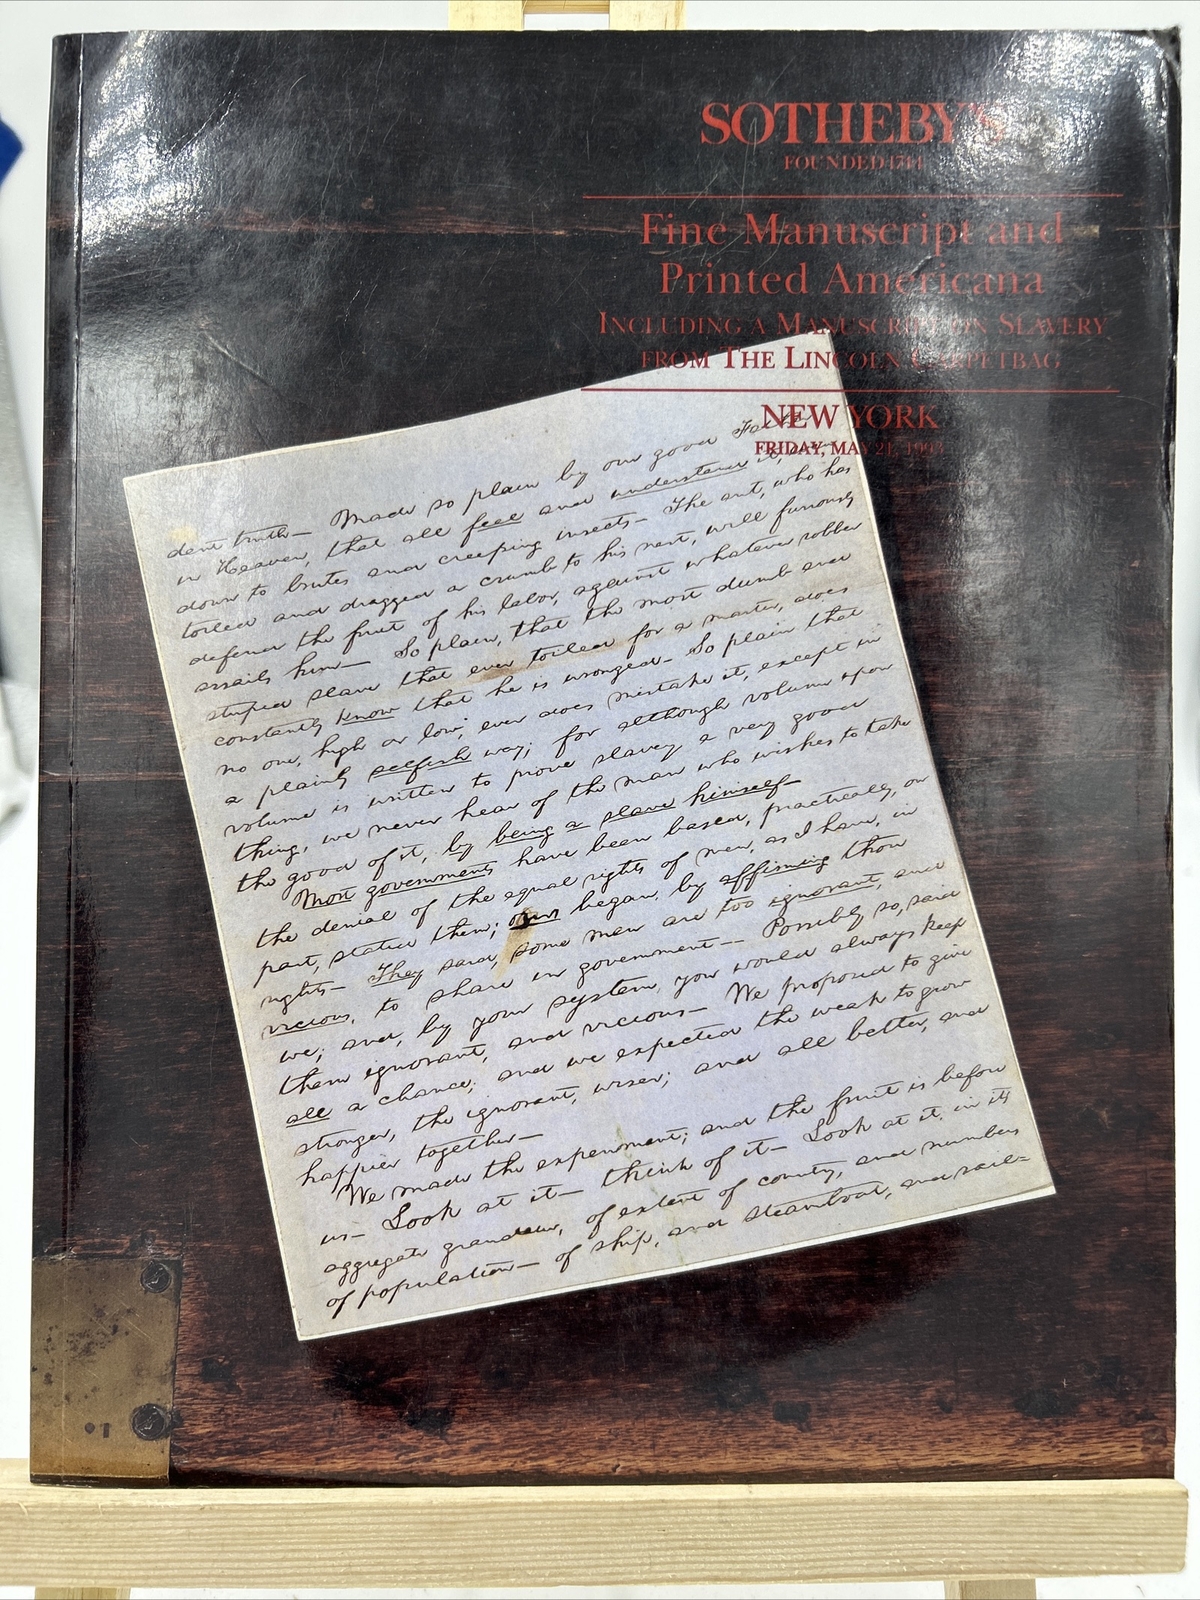 SOTHEBY'S
FOUNDED 1744
Fine Manuscript and
Printed Americana
INCLUDING A MANUSCRIPT ON SLAVERY
FROM THE LINCOLN CARPETBAG
NEW YORK
FRIDAY, MAY 21, 1993
dent truth— Made so plain by our good Father
in Heaven, that all feel and understand it, even
down to brutes and creeping insects— The ant, who has
toiled and dragged a crumb to his nest, will furiously
defend the fruit of his labor, against whatever robber
assails him— So plain, that the most dumb and
stupid slave that ever toiled for a master, does
constantly know that he is wronged— So plain that
no one, high or low, ever does mistake it, except in
a plainly selfish way; for although volume upon
volume is written to prove slavery a very good
thing, we never hear of the man who wishes to take
the good of it, by being a slave himself—
Most governments have been based, practically, on
the denial of the equal rights of men, as I have, in
part, stated them; ours began, by affirming those
rights— They said, some men are too ignorant, and
vicious, to share in government— Possibly so, said
we; and, by your system, you would always keep
them ignorant, and vicious— We proposed to give
all a chance; and we expected the weak to grow
stronger, the ignorant, wiser; and all better, and
happier together—
We made the experiment; and the fruit is before
us— Look at it— think of it— Look at it, in its
aggregate grandeur, of extent of country, and numbers
of population— of ship, and steamboat, and rail=